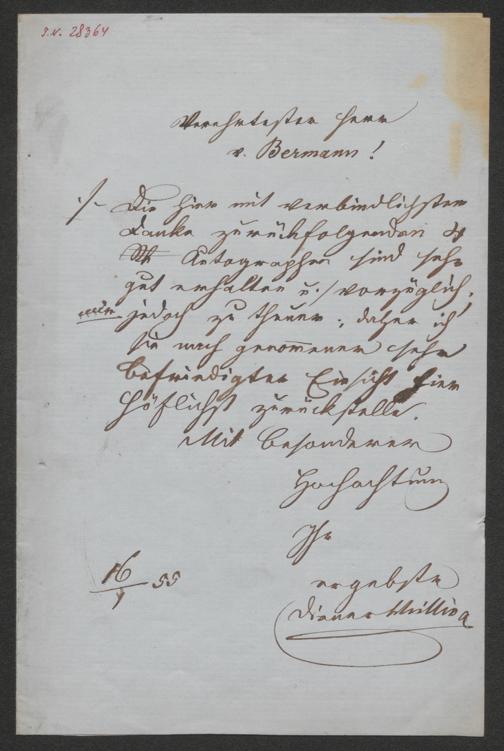 I.N. 28364
Verehrtester Herr
v. Bermann!
Die hier mit verbindlichstem
Danke zurückfolgenden
Autographen sind sehr
gut erhalten u. vorzüglich,
mir jedoch zu theuer; daher ich
sie nach genommener sehr
befriedigter Einsicht hier
höflichst zurückstelle.
Mit besonderer
Hochachtung
Ihr
ergebster
Diener
16/ 55